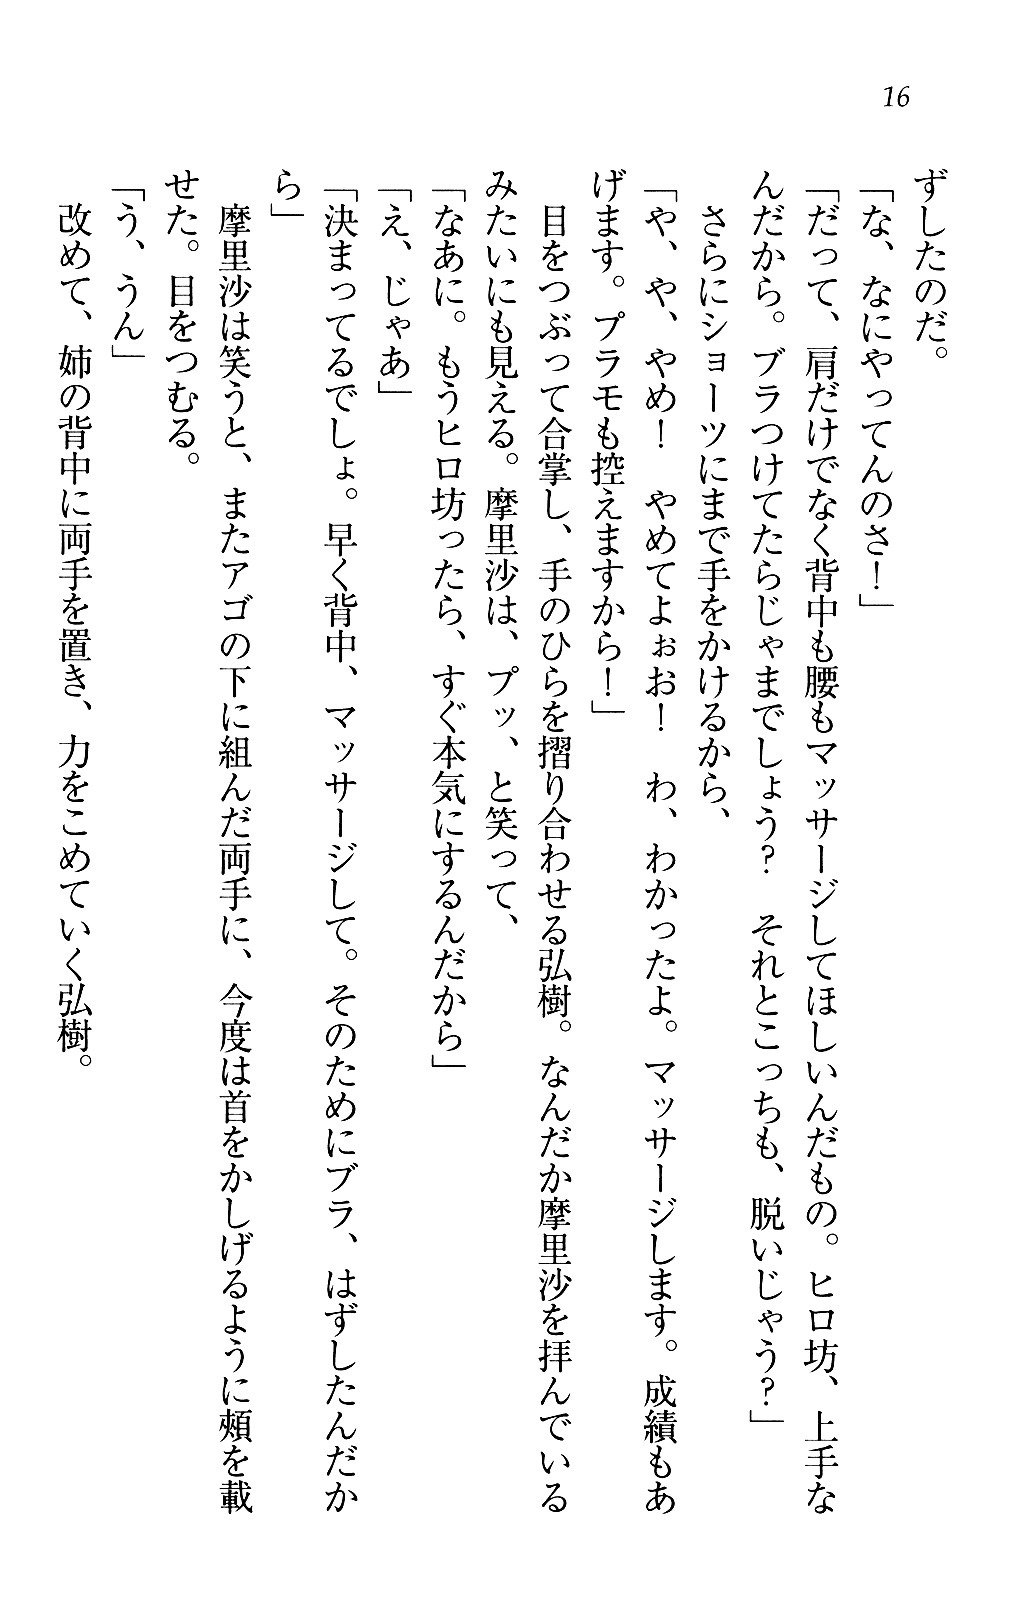 16
ずしたのだ。
「な、なにやってんのさ！」
「だって、肩だけでなく背中も腰もマッサージしてほしいんだもの。ヒロ坊、上手な
んだから。ブラつけてたらじゃまでしょう？　それとこっちも、脱いじゃう？」
　さらにショーツにまで手をかけるから、
「や、や、やめ！　やめてよぉお！　わ、わかったよ。マッサージします。成績もあ
げます。プラモも控えますから！」
　目をつぶって合掌し、手のひらを摺り合わせる弘樹。なんだか摩里沙を拝んでいる
みたいにも見える。摩里沙は、プッ、と笑って、
「なあに。もうヒロ坊ったら、すぐ本気にするんだから」
「え、じゃあ」
「決まってるでしょ。早く背中、マッサージして。そのためにブラ、はずしたんだか
ら」
　摩里沙は笑うと、またアゴの下に組んだ両手に、今度は首をかしげるように頰を載
せた。目をつむる。
「う、うん」
　改めて、姉の背中に両手を置き、力をこめていく弘樹。